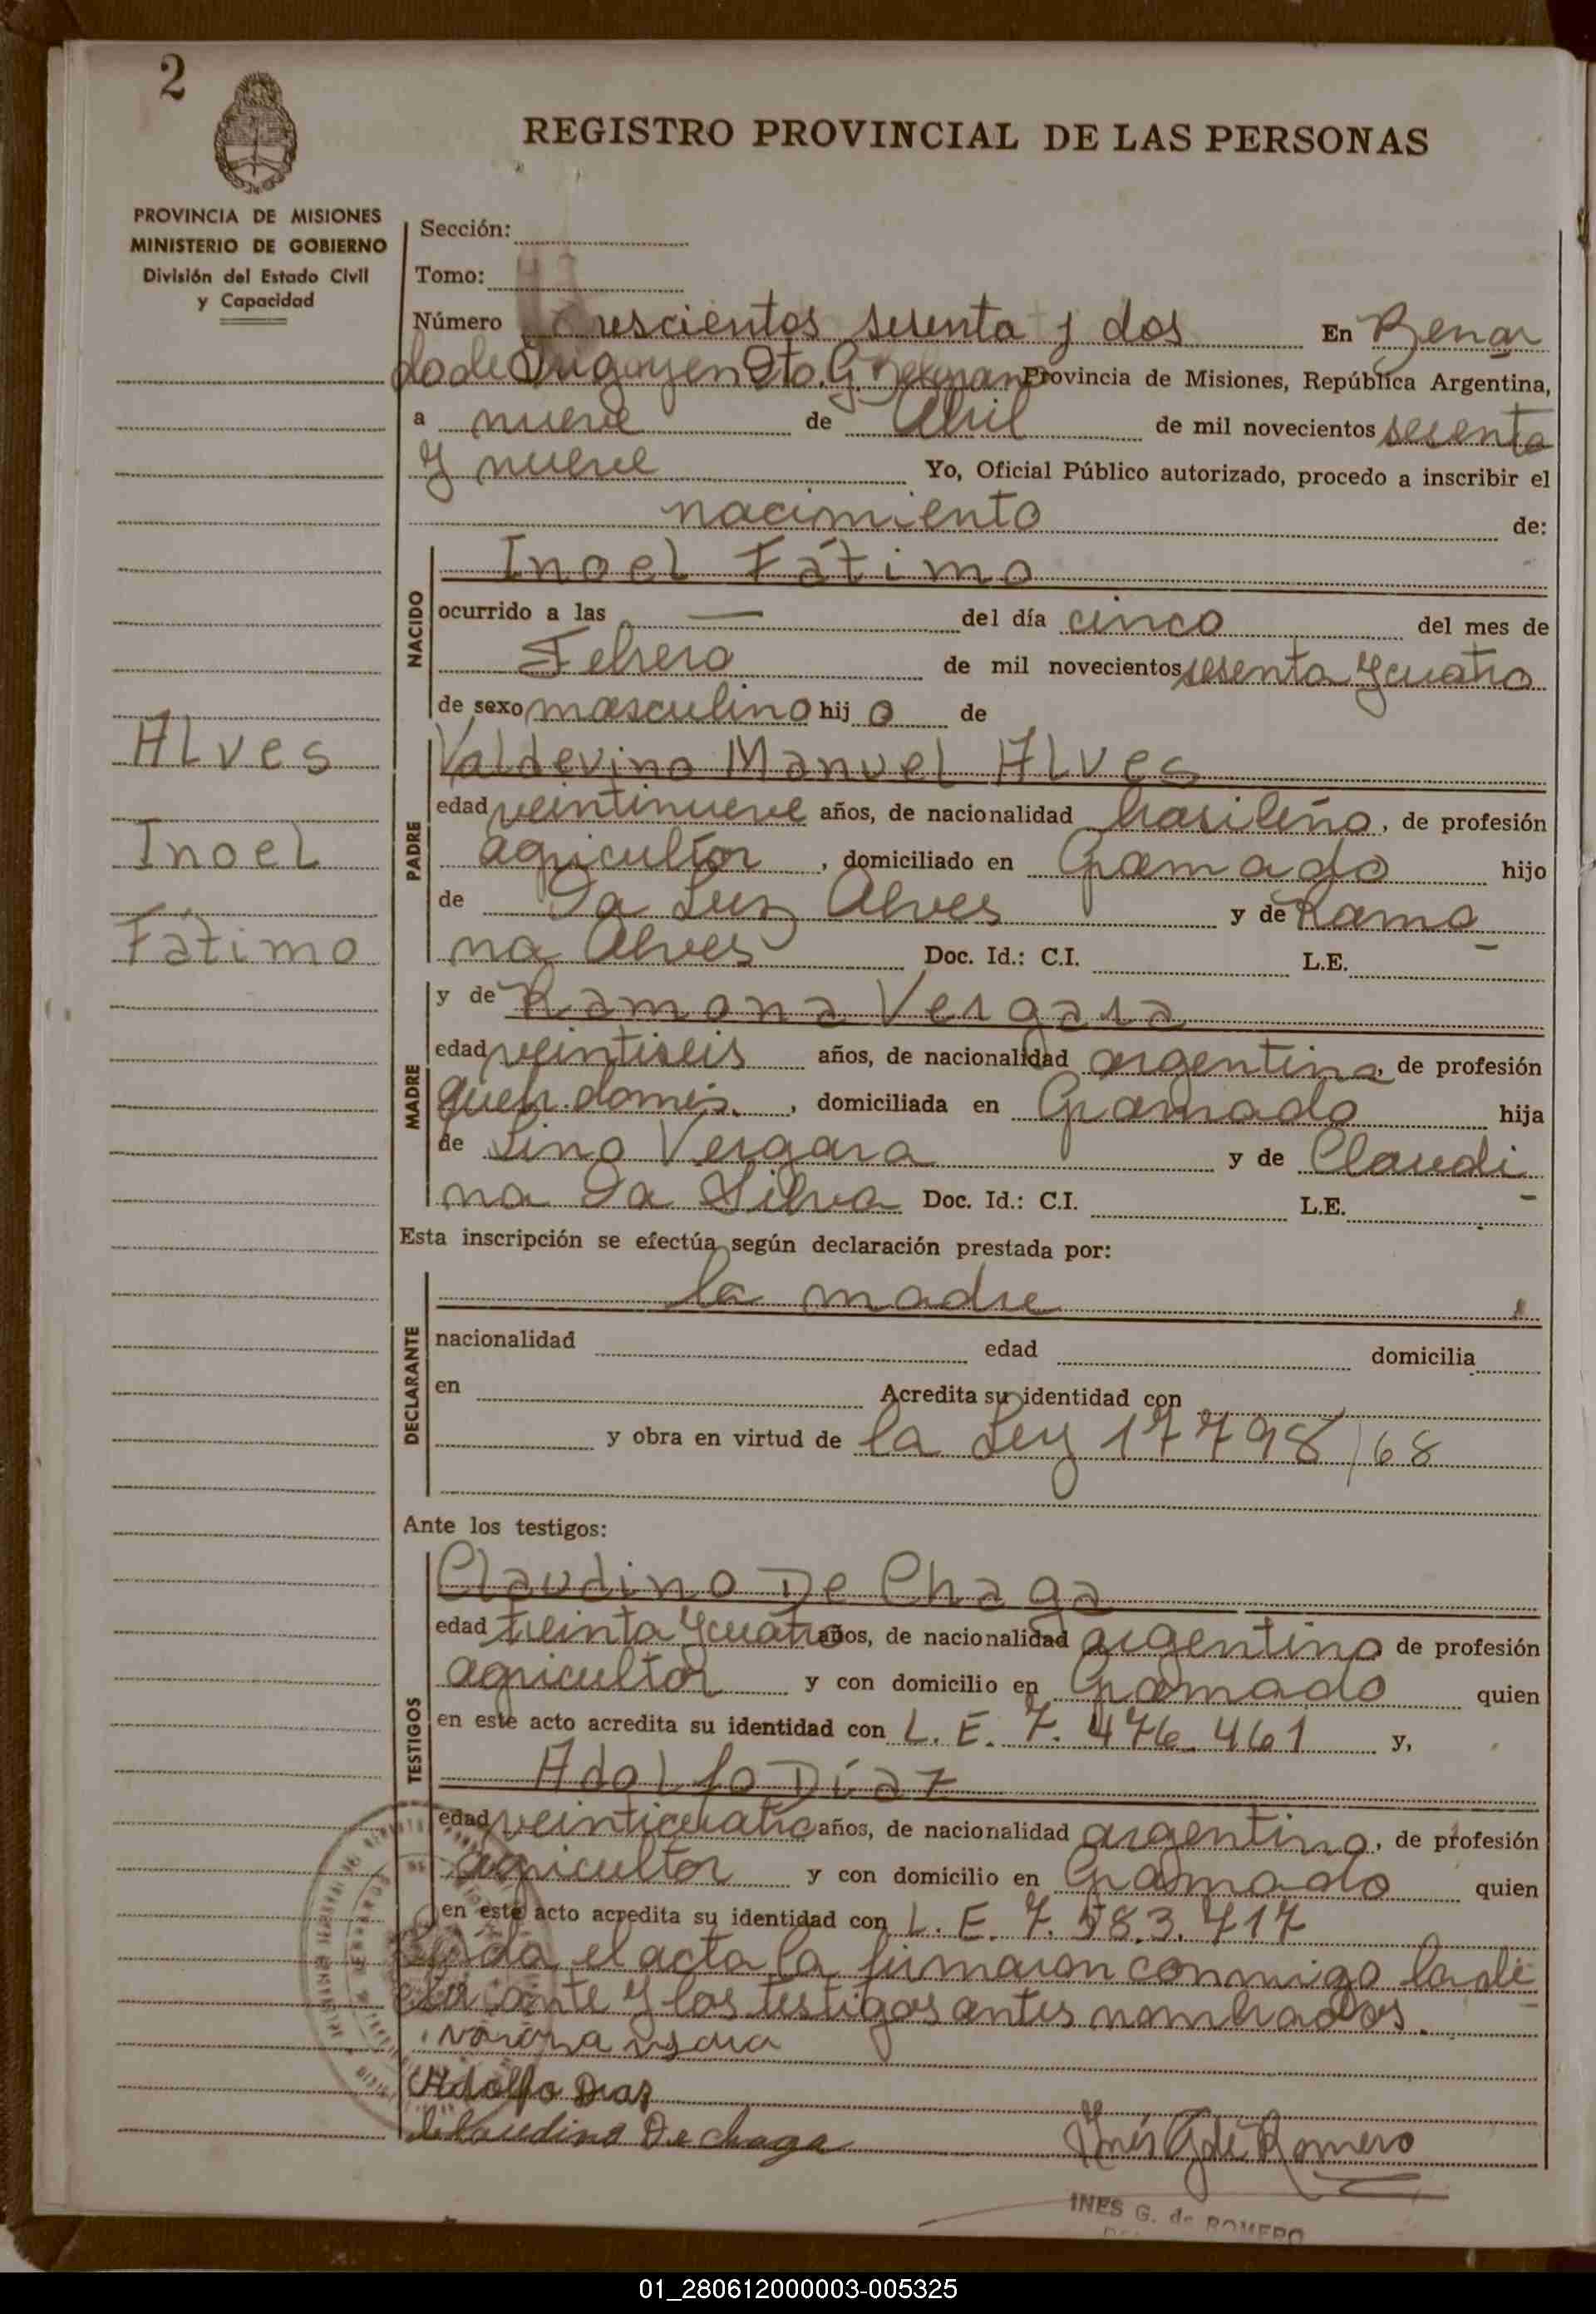 2
REGISTRO PROVINCIAL DE LAS PERSONAS
PROVINCIA DE MISIONES
MINISTERIO DE GOBIERNO
División del Estado Civil
y Capacidad
Sección:
Tomo:
Número Trescientos sesenta y dos En Bernar
do de Irigoyen Dto. G. Belgrano Provincia de Misiones, República Argentina,
a nueve de Abril de mil novecientos sesenta
y nueve Yo, Oficial Público autorizado, procedo a inscribir el
nacimiento de:
NACIDO
Inoel Fátimo
ocurrido a las — del día cinco del mes de
Febrero de mil novecientos sesenta y cuatro
de sexo masculino hij o de
Alves
Inoel
Fátimo
PADRE
Valdevino Manuel Alves
edad veintinueve años, de nacionalidad brasileño, de profesión
agricultor, domiciliado en Gramado hijo
de Da Luz Alves y de Ramo
na Alves Doc. Id.: C.I. L.E.
MADRE
y de Ramona Vergara
edad veintiseis años, de nacionalidad argentina, de profesión
queh. domés., domiciliada en Gramado hija
de Lino Vergara y de Claudi
na Da Silva Doc. Id.: C.I. L.E.
Esta inscripción se efectúa según declaración prestada por:
DECLARANTE
la madre
nacionalidad edad domicilia
en Acredita su identidad con
y obra en virtud de la Ley 17798/68
Ante los testigos:
TESTIGOS
Claudino De Chaga
edad treinta y cuatro años, de nacionalidad argentino de profesión
agricultor y con domicilio en Gramado quien
en este acto acredita su identidad con L. E. 7.476.461 y,
Adolfo Díaz
edad veinticuatro años, de nacionalidad argentino, de profesión
agricultor y con domicilio en Gramado quien
en este acto acredita su identidad con L. E. 7.583.717
Leida el acta la firmaron conmigo la de
clarante y los testigos antes nombrados.
Adolfo Diaz
Claudino De chaga
Inés G de Romero
INES G. de ROMERO
01_280612000003-005325